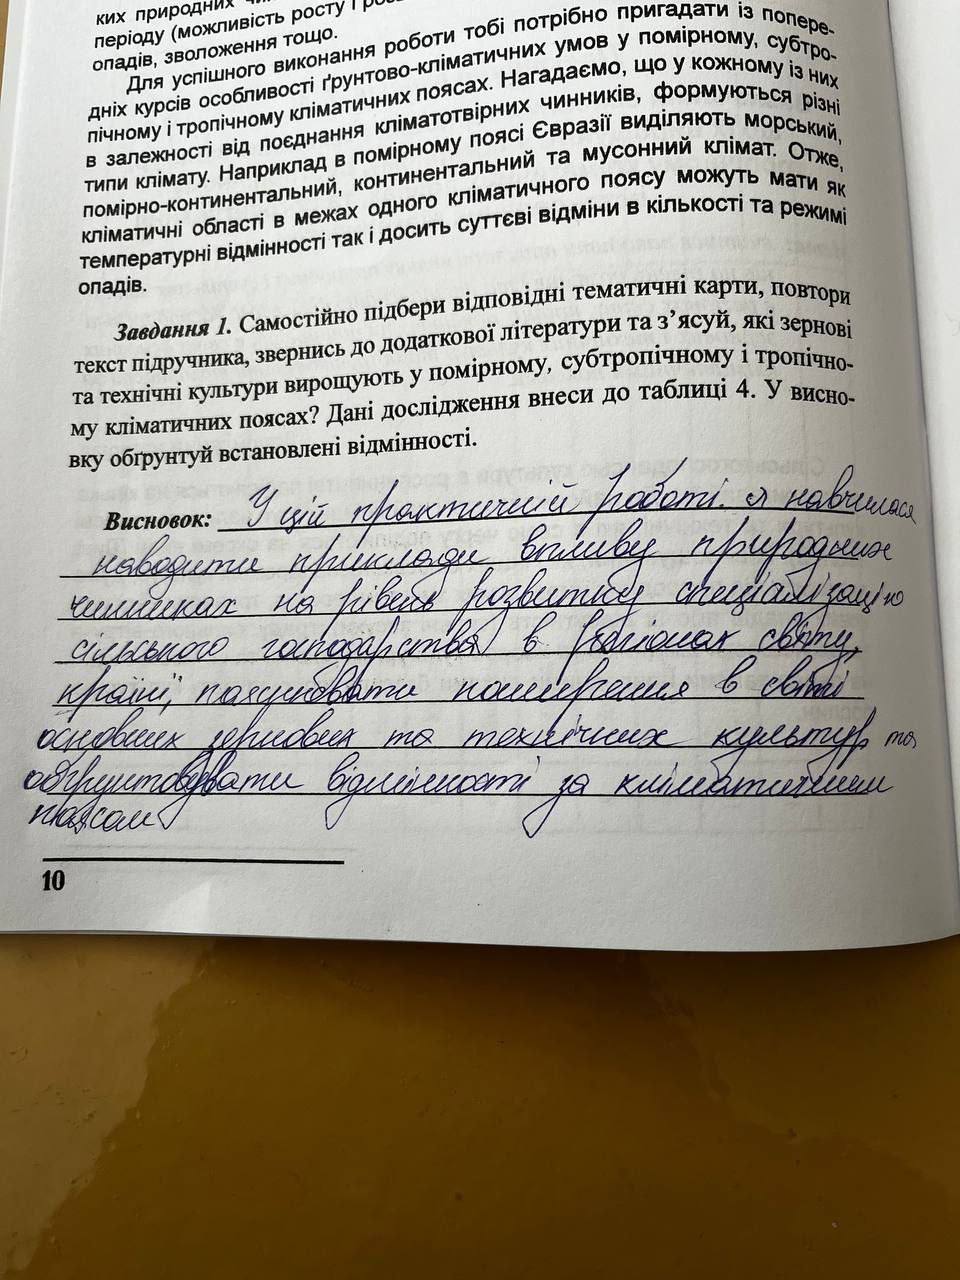 ких природних
періоду (можливість росту і
опадів, зволоження тощо.
Для успішного виконання роботи тобі потрібно пригадати із попере-
дніх курсів особливості ґрунтово-кліматичних умов у помірному, субтро-
пічному і тропічному кліматичних поясах. Нагадаємо, що у кожному із них
в залежності від поєднання кліматотвірних чинників, формуються різні
типи клімату. Наприклад в помірному поясі Євразії виділяють морський,
помірно-континентальний, континентальний та мусонний клімат. Отже,
кліматичні області в межах одного кліматичного поясу можуть мати як
температурні відмінності так і досить суттєві відміни в кількості та режимі
опадів.
Завдання 1. Самостійно підбери відповідні тематичні карти, повтори
текст підручника, звернись до додаткової літератури та з’ясуй, які зернові
та технічні культури вирощують у помірному, субтропічному і тропічно-
му кліматичних поясах? Дані дослідження внеси до таблиці 4. У висно-
вку обґрунтуй встановлені відмінності.
Висновок: У цій практичній роботі я навчилася
наводити приклади впливу природних
чинниках на рівень розвитку спеціалізацію
сільського господарства в регіонах світу,
країн, порівнювати поширення в світі
основних зернових та технічних культур та
обґрунтовувати відмінності за кліматичним
поясом
10